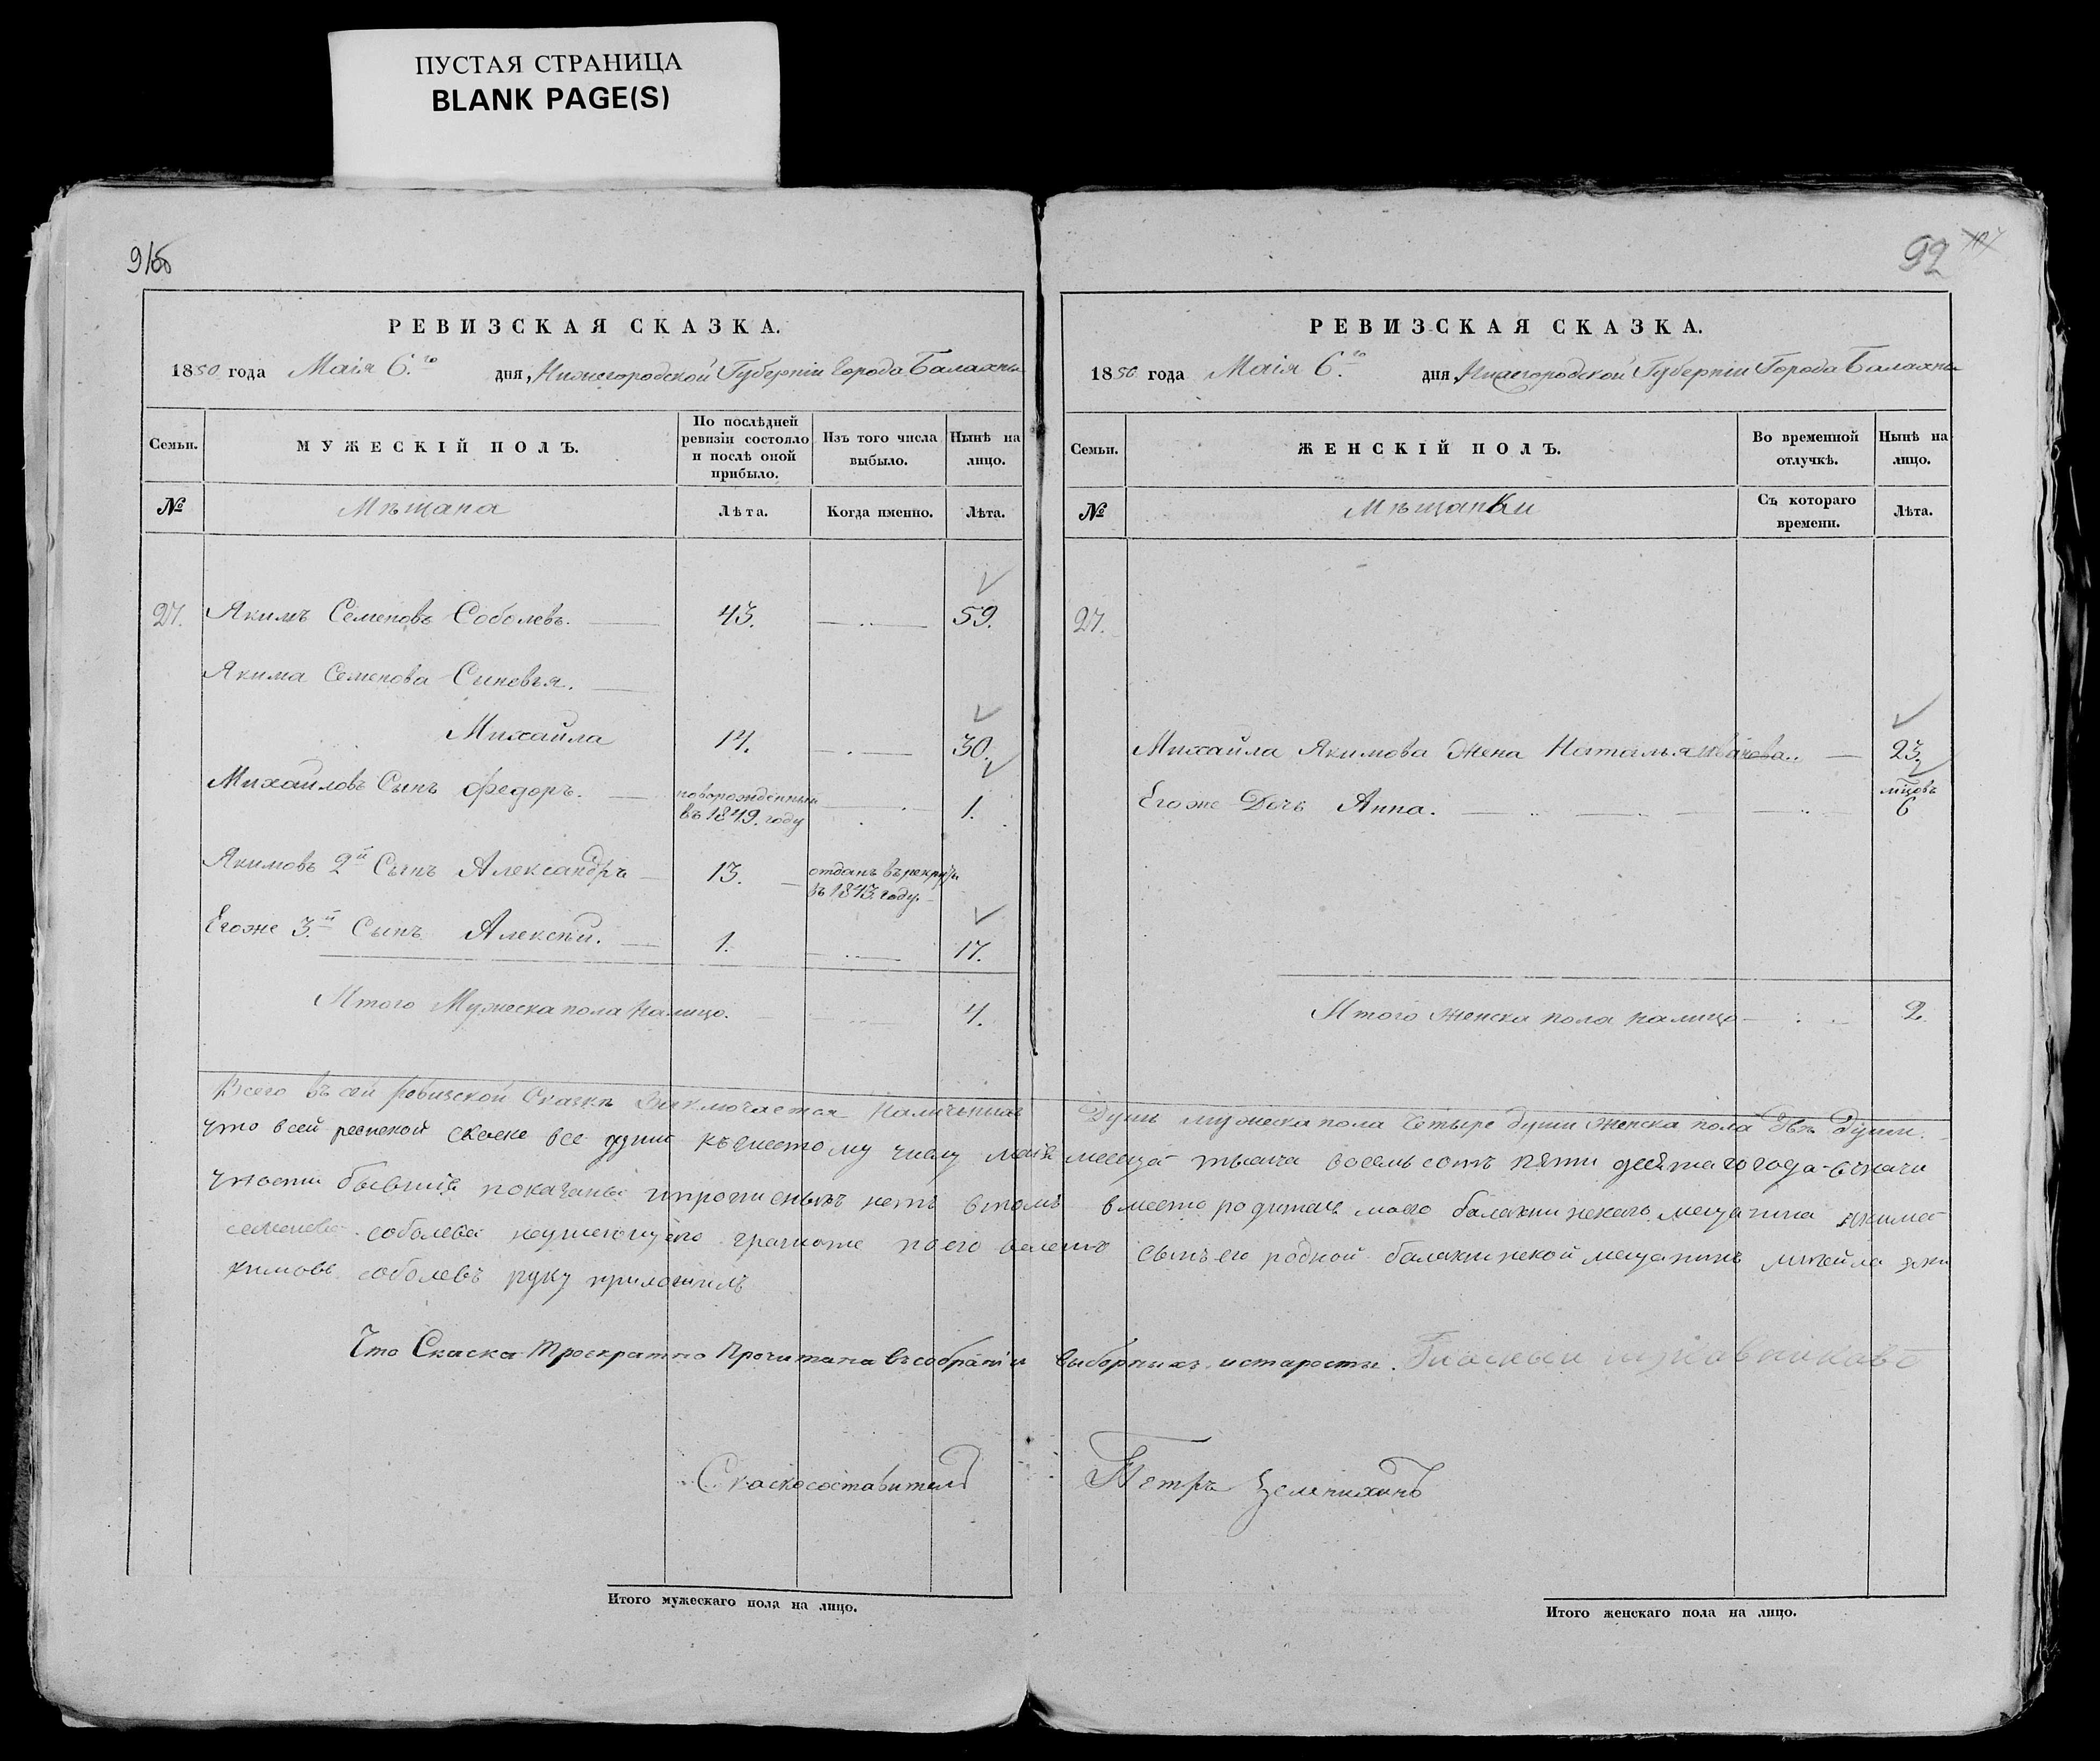 ПУСТАЯ СТРАНИЦА
BLANK PAGE(S)
РЕВИЗСКАЯ СКАЗКА.
1850 года Маія 6.го дня, Нижегородской Губерніи Города Балахны
Семьи.
МУЖЕСКІЙ ПОЛЪ.
По послѣдней ревизіи состояло и послѣ оной прибыло.
Изъ того числа выбыло.
Нынѣ на лицо.
№
Мѣщана
Лѣта.
Когда именно.
Лѣта.
27. Якимъ Семеновъ Соболевъ. 43. 59.
Якима Семенова Сыновья.
Михайла 14. 30.
Михайловъ Сынъ Федоръ. новорожденный въ 1849. году 1.
Якимовъ 2й Сынъ Александръ 13. отданъ въ рекруты въ 1843. году.
Егоже 3.й Сынъ Алексѣй. 1. 17.
Итого Мужеска пола налицо. 4.
92
РЕВИЗСКАЯ СКАЗКА.
1850 года Маія 6.го дня, Нижегородской Губерніи Города Балахны
Семьи.
ЖЕНСКІЙ ПОЛЪ.
Во временной отлучкѣ.
Нынѣ на лицо.
№
Мѣщанки
Съ котораго времени.
Лѣта.
27.
Михайла Якимова Жена Наталья Иванова. 23.
Егоже Дочь Анна. 6
Итого женска пола налицо 2.
Всего въ сей ревизской Сказкѣ Заключается Наличныхъ Душъ мужеска пола Четыре души женска пола Двѣ Души.
что в сей скаске все души къ шестому числу маія месеца тысеча восемь сотъ пяти десятаго года
бывшия показаны и прописныхъ нетъ в томъ вместо родителя моего балахнинскаго мещанина якима
семенова соболева неумеющего грамоте по его веленю сынъ его родной балахнинской мещанинъ михайла яки
кимовъ соболевъ руку приложилъ
Что Скаска Троекратно Прочитана въ собраніи выборныхъ и старосты.
Скаскосоставитель Петръ
Итого мужескаго пола на лицо.
Итого женскаго пола на лицо.